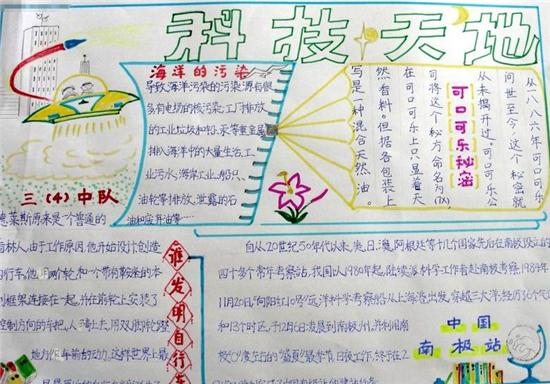 科技天地
海洋的污染
导致海洋污染的污染源有很
多有电场的核污染;工厂排放
的工业垃圾和铅、汞等重金属
排入海洋中的大量生活、工
业污水;海岸工业、船只、
油轮等排放、泄露的石
油和废弃油等……
可口可乐秘密
从一八八六年可口可乐
问世至今,这个秘密就
从未揭开过。可口可乐公
司将这个秘方命名为(7X)
在可口可乐上只显着天
然香料。但据各包装上
写是一种混合天然油。
三(4)中队
德莱斯原来是一个普通的
看林人,由于工作原因,他开始设计创造
自行车,他用两个轮和一个带有鞍座的木
制框架连接在一起,并在前轮上安装了
控制方向的车把,人骑上去,用双脚蹬踏
地为自行车前的动力,这样世界上最
谁发明自行车
自从20世纪50年代以来,美、日、澳、阿根廷等十几个国家先后在南极设立的
四十多个常年考察站,我国从1980年起,陆续派科学工作者赴南极考察.1984年
11月20日"向阳红10号"远洋科学考察船从上海港出发,穿越三大洋,经历36个
和13个时区,于12月26日
中国
南极站